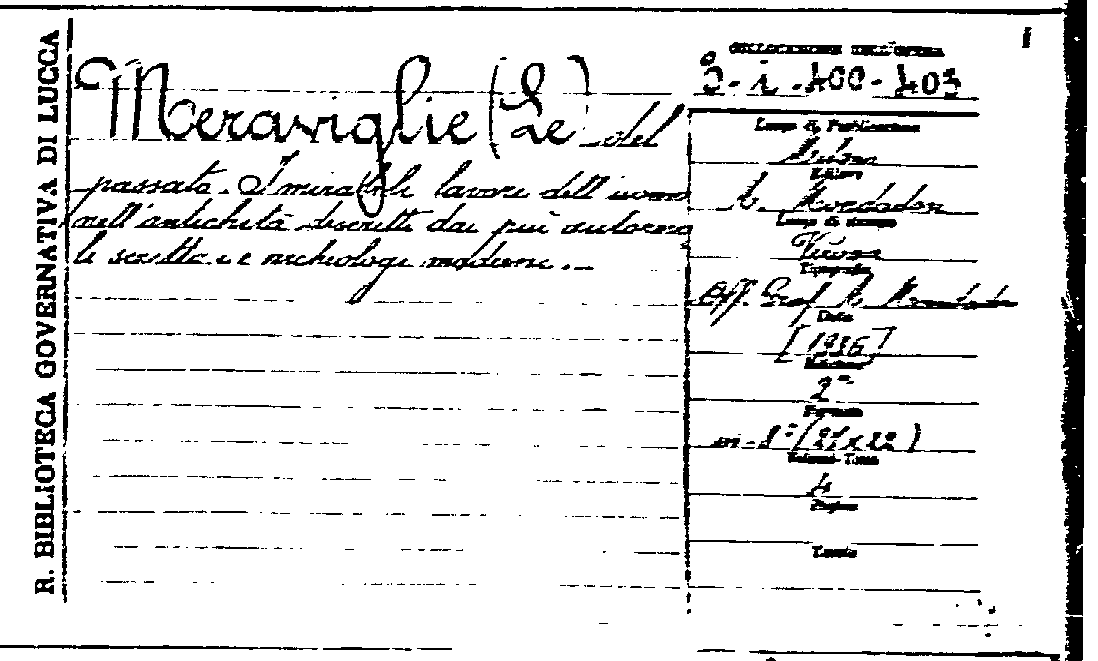 R. BIBLIOTECA GOVERNATIVA DI LUCCA
1
Meraviglie (Le) del
passato. I mirabili lavori dell'uomo
nell'antichità descritti dai più autorevo
li scrittori e archeologi moderni.
COLLOCAZIONE DELL'OPERA
I. 400-403
Luogo di Pubblicazione
Milano
Editore
A. Mondadori
Luogo di stampa
Verona
Tipografia
Off. Graf. A. Mondadori
Data
[1936]
Edizione
2ª
Formato
in-8°
Volumi-Tomi
4
Pagine
Tavole